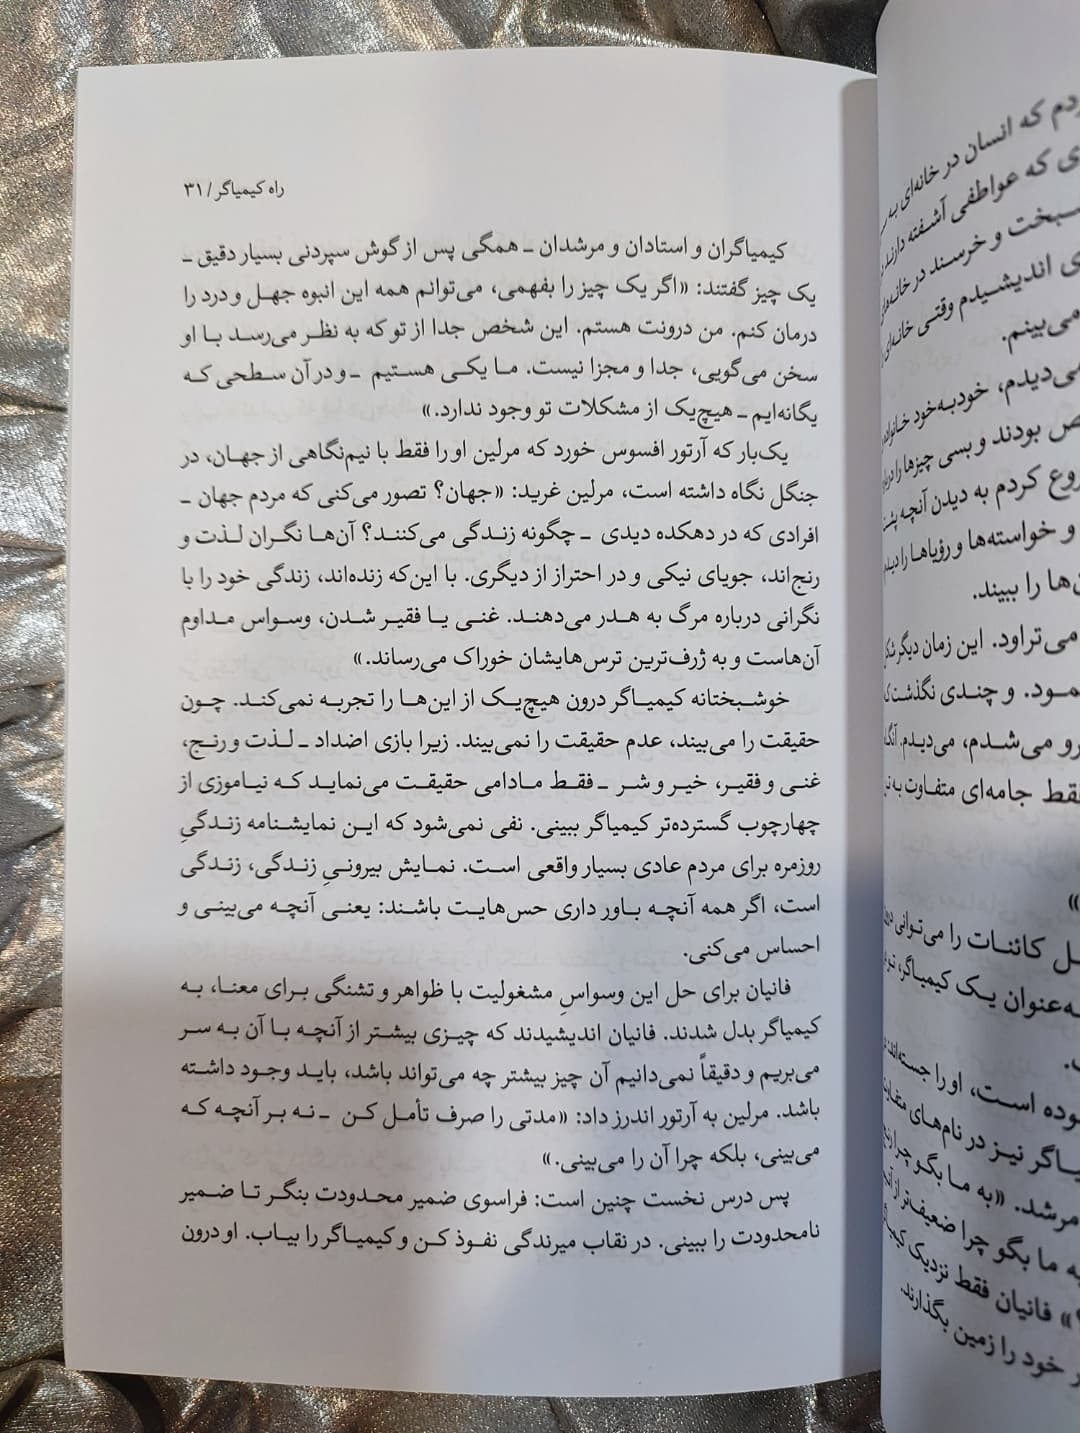 راه کیمیاگر / ۳۱
کیمیاگران و استادان و مرشدان ـ همگی پس از گوش سپردنی بسیار دقیق ـ
یک چیز گفتند: «اگر یک چیز را بفهمی، می‌توانم همه این انبوه جهل و درد را
درمان کنم. من درونت هستم. این شخص جدا از تو که به نظر می‌رسد با او
سخن می‌گویی، جدا و مجزا نیست. ما یکی هستیم ـ و در آن سطحی که
یگانه‌ایم ـ هیچ‌یک از مشکلات تو وجود ندارد.»
یک‌بار که آرتور افسوس خورد که مرلین او را فقط با نیم‌نگاهی از جهان، در
جنگل نگاه داشته است، مرلین غرید: «جهان؟ تصور می‌کنی که مردم جهان ـ
افرادی که در دهکده دیدی ـ چگونه زندگی می‌کنند؟ آن‌ها نگران لذت و
رنج‌اند، جویای نیکی و در احتراز از دیگری. با این‌که زنده‌اند، زندگی خود را با
نگرانی درباره مرگ به هدر می‌دهند. غنی یا فقیر شدن، وسواس مداوم
آن‌هاست و به ژرف‌ترین ترس‌هایشان خوراک می‌رساند.»
خوشبختانه کیمیاگر درون هیچ‌یک از این‌ها را تجربه نمی‌کند. چون
حقیقت را می‌بیند، عدم حقیقت را نمی‌بیند. زیرا بازی اضداد ـ لذت و رنج،
غنی و فقیر، خیر و شر ـ فقط مادامی حقیقت می‌نماید که نیاموزی از
چهارچوب گسترده‌تر کیمیاگر ببینی. نفی نمی‌شود که این نمایشنامه زندگیِ
روزمره برای مردم عادی بسیار واقعی است. نمایش بیرونیِ زندگی، زندگی
است، اگر همه آنچه باور داری حس‌هایت باشند: یعنی آنچه می‌بینی و
احساس می‌کنی.
فانیان برای حل این وسواسِ مشغولیت با ظواهر و تشنگی برای معنا، به
کیمیاگر بدل شدند. فانیان اندیشیدند که چیزی بیشتر از آنچه با آن به سر
می‌بریم و دقیقاً نمی‌دانیم آن چیز بیشتر چه می‌تواند باشد، باید وجود داشته
باشد. مرلین به آرتور اندرز داد: «مدتی را صرف تأمل کن ـ نه بر آنچه که
می‌بینی، بلکه چرا آن را می‌بینی.»
پس درس نخست چنین است: فراسوی ضمیر محدودت بنگر تا ضمیر
نامحدودت را ببینی. در نقاب میرندگی نفوذ کن و کیمیاگر را بیاب. او درون
که انسان در خانه‌ای به
ی که عواطفی آشفته دارند
و خرسند در خانه‌های
اندیشیدم وقتی خانه‌ای
می‌بینم.
می‌دیدم، خودبه‌خود خانواده
بودند و بسی چیزها را
کردم به دیدن آنچه
و خواسته‌ها و رؤیاها را دیدم
را ببیند.
می‌تراود. این زمان دیگر
و چندی نگذشت که
می‌شدم، می‌دیدم. آنگاه
فقط جامه‌ای متفاوت به
»
کائنات را می‌توانی
به‌عنوان یک کیمیاگر، تو
است، او را جسته‌اند
نیز در نام‌های
مرشد. «به ما بگو چرا
ما بگو چرا ضعیف‌تر از
» فانیان فقط نزدیک
خود را زمین بگذارند.